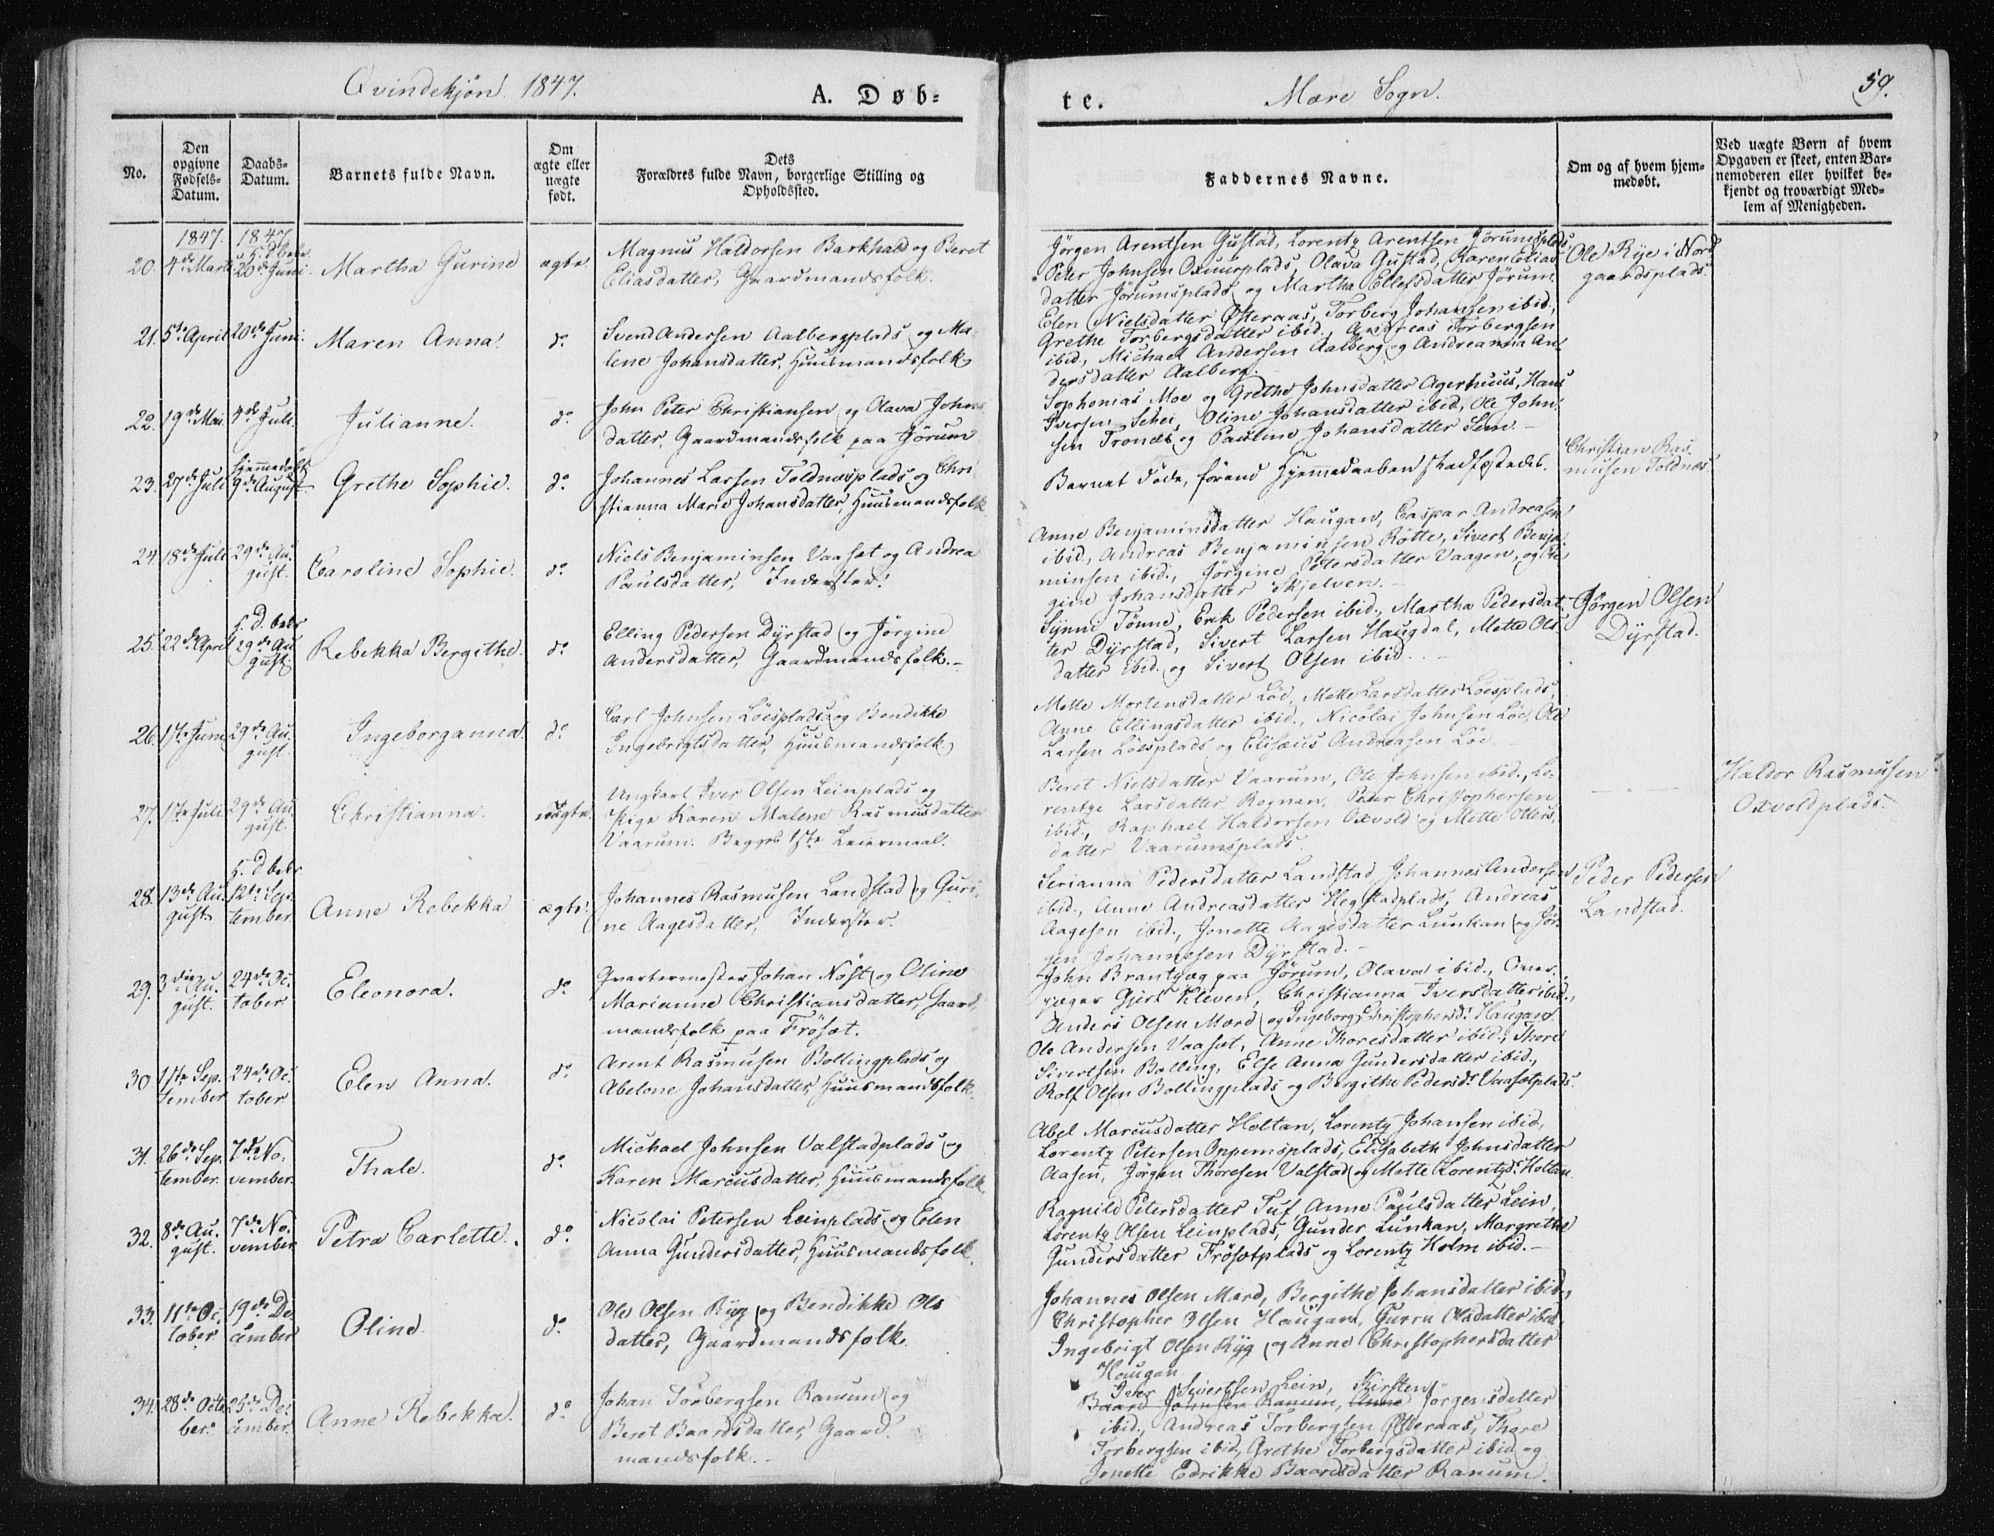 Qvindekjøn 1847.
A. Døb-
te.
Mære Sogn.
59.
No.
Den opgivne Fødsels-Datum.
Daabs-Datum.
Barnets fulde Navn.
Om ægte eller uægte født.
Dets Forældres fulde Navn, borgerlige Stilling og Opholdssted.
Faddernes Navne.
Om og af hvem hjem-medøbt.
Ved uægte Børn af hvem Opgaven er skeet, enten Bar-nemoderen eller hvilket be-kjendt og troværdigt Med-lem af Menigheden.
1847. 1847.
20. 4de Marts 20de Juni. Martha Gurine ægte.
Magnus Haldorsen Barkhald og Beret
Eliasdatter, Gaardmandsfolk.
Jørgen Arentsen Gustad, Lorentz Arentsen Jørumsplads
Peter Johnsen Oxuurplads, Olava Gustad, Karen Elias-
datter Jørumsplads og Martha Ellefsdatter Jørum.
Ole Rye i Nord-
gaardsplads.
21. 5te April 20de Juni. Maren Anna. do
Svend Andersen Aalbergplads og Ma-
lene Johansdatter, Huusmandsfolk
Elen Nielsdatter Østeraas, Torberg Johansen ibid,
Grethe Torbergsdatter ibid., Andreas Torbergsen
ibid, Michael Andersen Aalberg og Andreanna An-
dersdatter Aalberg.
22. 19de Mai. 4de Juli. Julianne. do
John Peter Christiansen og Olava Johns-
datter, Gaardmandsfolk paa Jørum
Sophonias Moe og Grethe Johnsdatter Agerhuus, Hans
Iversen Schei, Oline Johansdatter ibid, Ole John-
sen Tronæs og Pauline Johansdatter Sem.
23. 27de Juli hjemmedøbt 9de August Grethe Sophie. do
Johannes Larsen Toldnæsplads og Chri-
stianna Marie Johansdatter, Huusmandsfolk
Barnet døde, førend Hjemmedaaben stadfæstedes.
Christian Ras-
musen Toldnæs.
24. 18de Juli 29de Au-
gust. Caroline Sophie. do
Niels Benjaminsen Vaaset og Andrea
Paulsdatter, Inderster.
Anne Benjaminsdatter Haugan, Caspar Andreasen
ibid, Andreas Benjaminsen Røtte, Sivert Benja-
minsen ibid., Jørgine Petersdatter Vaagen, og
gine Johansdatter Skjelven.
25. 22de April f. D. bebr
29de Au-
gust. Rebekka Bergithe. do
Elling Pedersen Dyrstad og Jørgine
Andersdatter, Gaardmandsfolk.
Synni Tønne, Erik Pedersen ibid., Martha Pedersdat-
ter Dyrstad, Sivert Larsen Haugdal, Mette Ols-
datter ibid. og Sivert Olsen ibid.
Jørgen Olsen
Dyrstad.
26. 17de Juni 29de Au-
gust. Ingeborganna. do
Carl Johnsen Løesplads og Bendikke
Ingebrigtsdatter, Huusmandsfolk.
Mette Mortensdatter Løe, Mette Larsdatter Løesplads,
Anne Ellingsdatter ibid., Nicolai Johnsen Løe, Ole
Larsen Løesplads og Elisæus Andreasen Løe
27. 17de Juli 29de Au-
gust. Christianna. uægte.
Ungkarl Iver Olsen Leinplads og
Pige Karen Malene Rasmusdatter
Vaarum. Begges 1ste Leiermaal.
Beret Nielsdatter Vaarum, Ole Johnsen ibid., Lo-
rentze Larsdatter Rognan, Peter Christophersen
ibid., Raphael Haldorsen Oxvold og Mette Otters-
datter Vaarumsplads.
Haldor Rasmusen
Oxvoldplads.
28. 13de Au-
gust f. D. bebr
12te Sep-
tember. Anne Rebekka ægte.
Johannes Rasmusen Landstad og Guri-
ne Aagesdatter, Inderster.
Serianna Pedersdatter Landstad, Johannes Andersen
ibid., Anne Andreasdatter Hegstadplads, Andreas
Aagesen ibid., Jonette Aagesdatter Lunkan og Jør-
gen Johannesen Dyrstad.
Peder Pedersen
Landstad.
29. 3die Au-
gust. 24de Oc-
tober Eleonora. do
Qvartermester Johan Nøst og Oline
Marianne Christiansdatter, Gaard-
mandsfolk paa Frøset.
John Brantzæg paa Jørum, Olava ibid.,
jæger Gjert Kleven, Christianna Iversdatter ibid.,
Anders Olsen Mard og Ingeborg Christophersd. Haugan
30. 17de Sep-
tember 24de Oc-
tober Elen Anna. do
Arent Rasmusen Bollingplads og
Abelone Johansdatter, Huusmandsfolk.
Ole Andersen Vaaset, Anne Thoresdatter ibid., Thore
Sivertsen Bolling, Else Anna Gundersdatter ibid.,
Rolf Olsen Bollingplads og Bergithe Pedersdr Vaasetplads.
31. 26de Sep-
tember. 7de No-
vember. Thale. do
Michael Johnsen Valstadplads og
Karen Marcusdatter, Huusmandsfolk.
Abel Marcusdatter Holtan, Lorentz Johansen ibid,
Lorentz Petersen Oppemsplads, Elisabeth Johnsdatter
Aasen, Jørgen Thoresen Valstad og Mette Lorentzdr Holtan.
32. 8de Au-
gust. 7de No-
vember Petra Carlette. do
Nicolai Petersen Leinplads og Elen
Anna Gundersdatter, Huusmandsfolk.
Ragnild Petersdatter Tuf, Anne Paulsdatter Lein,
Lorentz Olsen Leinplads, Gunder Lunkan, Margrethe
Gundersdatter Frøsetplads og Lorentz Holm ibid.
33. 11te Oc-
tober. 19de De-
cember Oline. do
Ole Olsen Ryg og Bendikke Ols-
datter, Gaardmandsfolk.
Johannes Olsen Mard, Bergithe Johansdatter ibid.,
Christopher Olsen Haugan, Gurru Olsdatter ibid
Ingebrigt Olsen Ryg og Anne Christophersdatter
Haugan
34. 28de Octo-
ber. 25de De-
cember. Anne Rebekka. do
Johan Torbergsen Ranum og
Beret Baardsdatter, Gaard-
mandsfolk.
Iver Sivertsen Lein, Kirsten
Baard Johnsen Ranum, Anne Jørgensdatter
ibid., Andreas Torbergsen Østeraas, Thore
Torbergsen ibid., Grethe Torbergsdatter ibid og
Jonette Edrikke Baardsdatter Ranum.